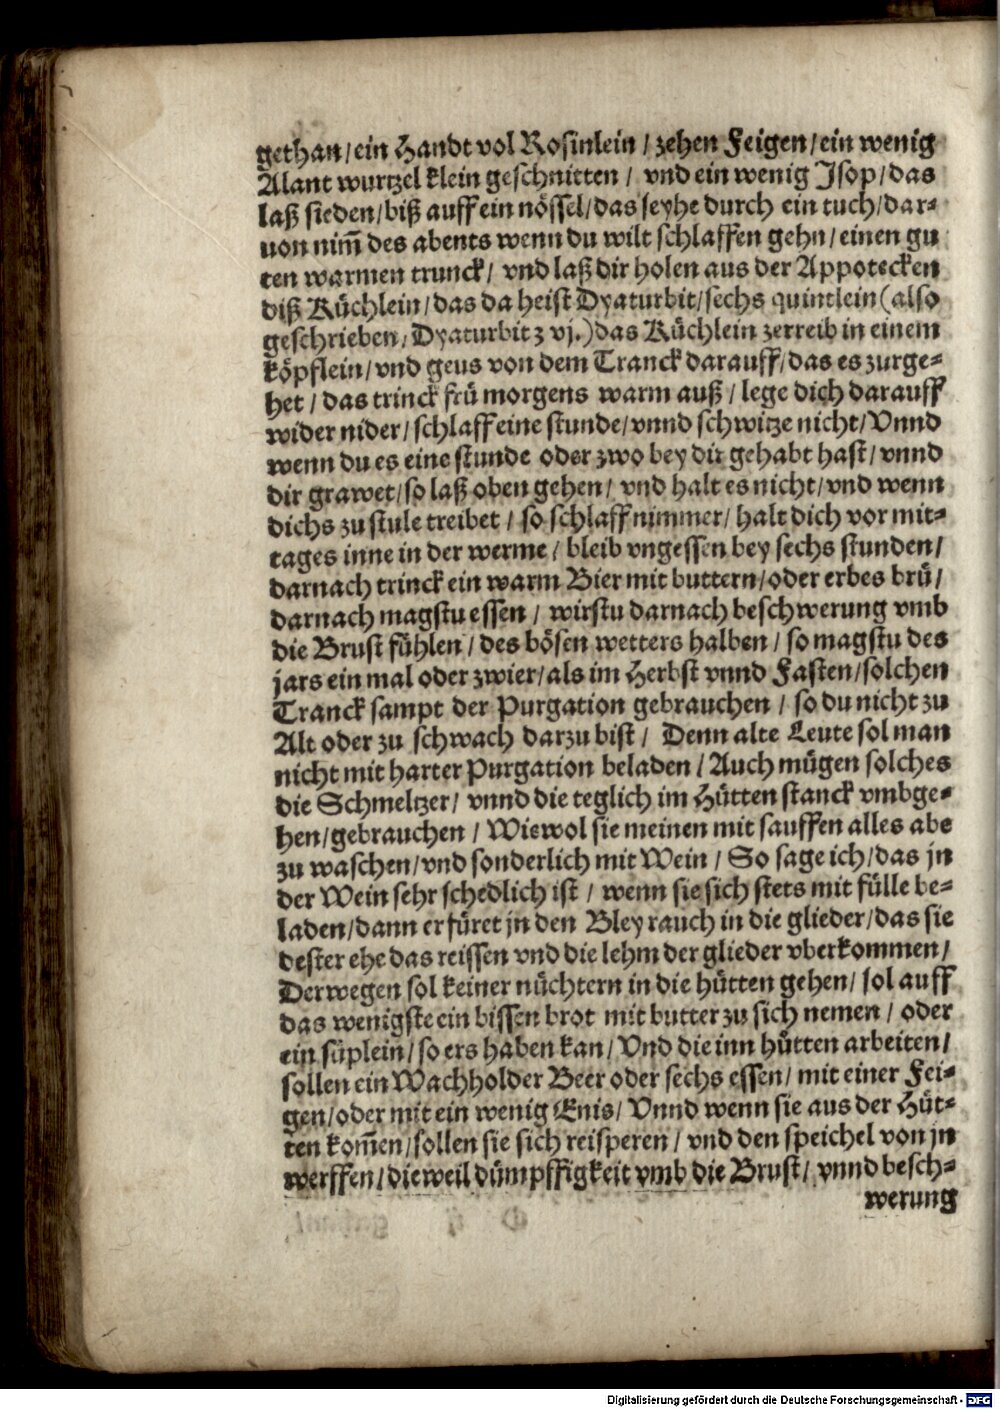 gethan/ein Handt vol Rosinlein / zehen Feigen/ein wenig
Alant wurtzel klein geschnitten / vnd ein wenig Jsop/das
laß sieden/biß auff ein nössel/das seyhe durch ein tuch/dar-
uon nim̃ des abents wenn du wilt schlaffen gehn/einen gu
ten warmen trunck/ vnd laß dir holen aus der Appotecken
diß Küchlein/das da heist Dyaturbit/sechs quintlein(also
geschrieben/Dyaturbit ʒ vj.)das Küchlein zerreib in einem
köpflein/vnd geus von dem Tranck darauff/das es zurge-
het / das trinck frü morgens warm auß / lege dich darauff
wider nider/schlaff eine stunde/vnnd schwitze nicht/Vnnd
wenn du es eine stunde oder zwo bey dir gehabt hast/vnnd
dir grawet/so laß oben gehen/ vnd halt es nicht/vnd wenn
dichs zu stule treibet / so schlaff nimmer/halt dich vor mit-
tages inne in der werme / bleib vngessen bey sechs stunden/
darnach trinck ein warm Bier mit buttern/oder erbes brü/
darnach magstu essen / wirstu darnach beschwerung vmb
die Brust fühlen/des bösen wetters halben / so magstu des
jars ein mal oder zwier/als im Herbst vnnd Fasten/solchen
Tranck sampt der Purgation gebrauchen / so du nicht zu
Alt oder zu schwach darzu bist / Denn alte Leute sol man
nicht mit harter Purgation beladen / Auch mügen solches
die Schmeltzer/ vnnd die teglich im Hütten stanck vmbge-
hen/gebrauchen / Wiewol sie meinen mit sauffen alles abe
zu waschen/vnd sonderlich mit Wein / So sage ich/das jn
der Wein sehr schedlich ist / wenn sie sich stets mit fülle be-
laden/dann er füret jn den Bley rauch in die glieder/das sie
dester ehe das reissen vnd die lehm der glieder vberkommen/
Derwegen sol keiner nüchtern in die hütten gehen/ sol auff
das wenigste ein bissen brot mit butter zu sich nemen / oder
ein süplein/so ers haben kan/Vnd die inn hütten arbeiten/
sollen ein Wachholder Beer oder sechs essen/ mit einer Fei-
gen/oder mit ein wenig Enis/ Vnnd wenn sie aus der Hüt-
ten kom̃en/sollen sie sich reisperen / vnd den speichel von jn
werffen/dieweil dümpffigkeit vmb die Brust/ vnnd besch-
werung
Digitalisierung gefördert durch die Deutsche Forschungsgemeinschaft - DFG